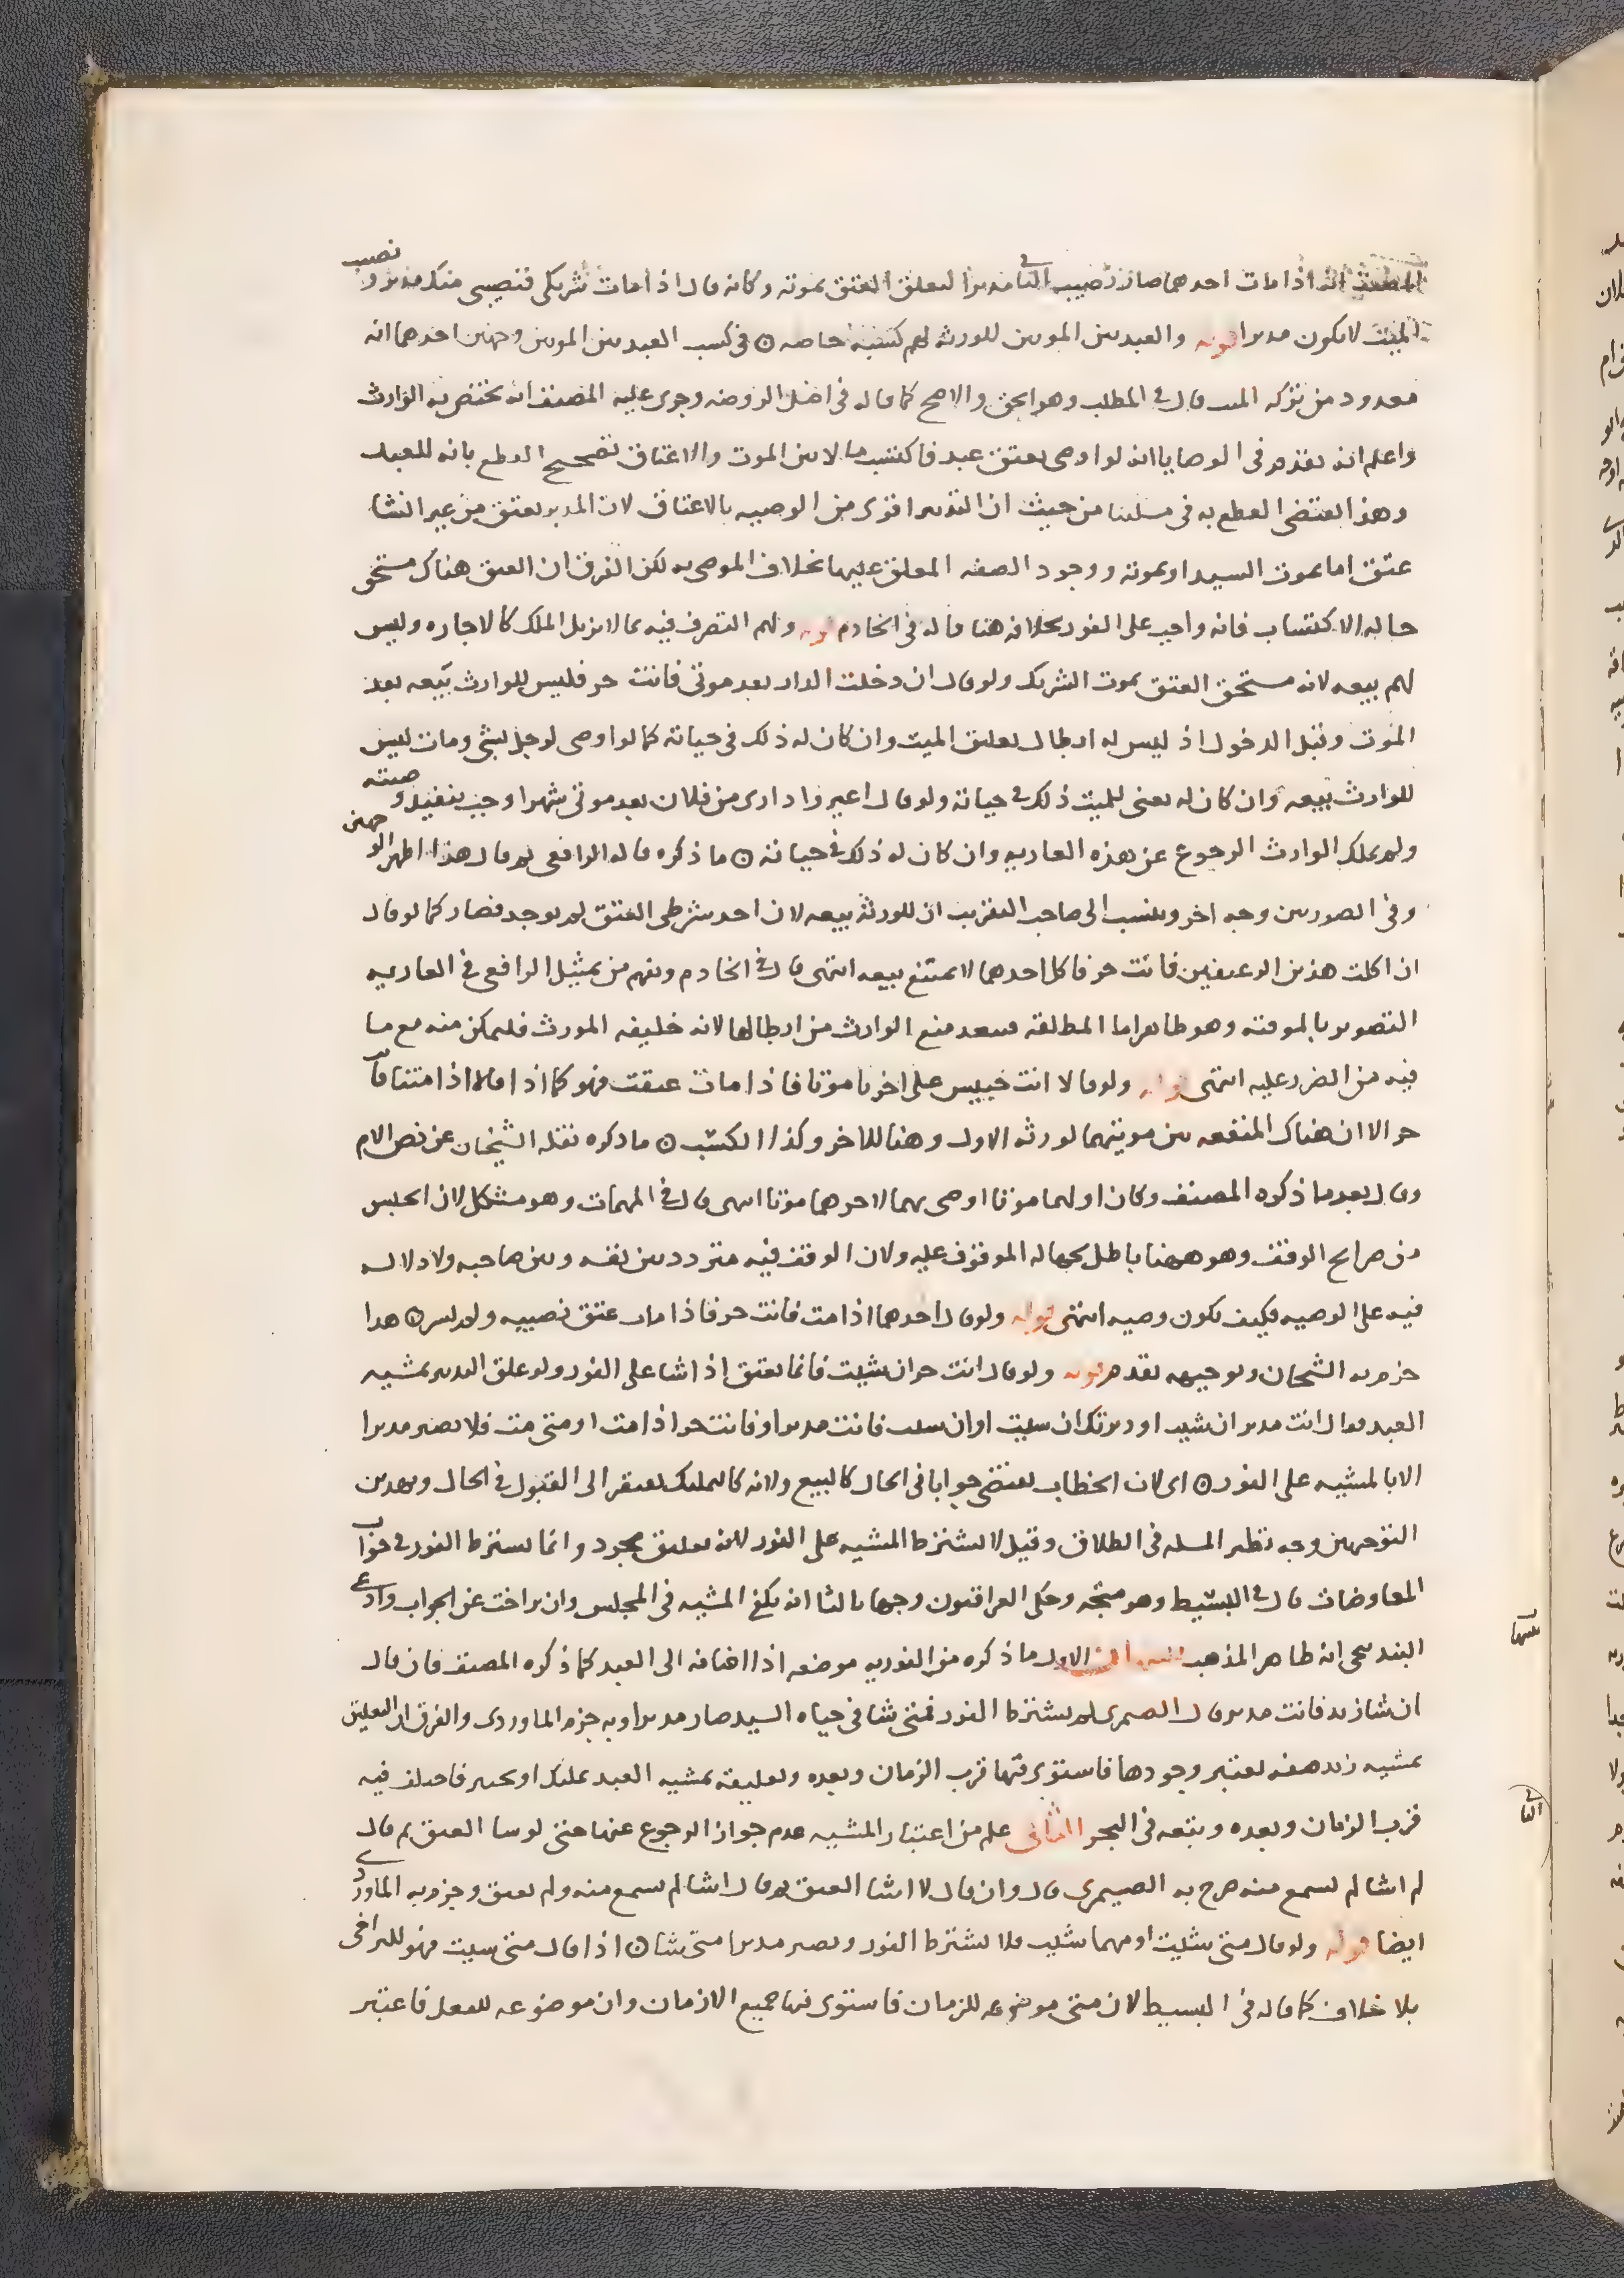 المطلب انه اذا مات احدهما صار نصيب الثاني مدبرا لتعلق العتق بموته وكانه قال اذا مات شريكي فنصيبي منك مدبر ونصيب
الميت لا يكون مدبرا قوله والعبد بين الموتين للورثة لهم كسبه خاصه ۞ في كسب العبد بين الموتين وجهين احدهما انه
معدود من تركه الميت قال في المطلب وهو الحق والاصح كما قاله في اصل الروضه وجرى عليه المصنف انه يختص به الوارث
واعلم انه تقدم في الوصايا انه لو اوصى بعتق عبد فاكتسب مالا بين الموت والاعتاق تصحيح القطع بانه للعبد
وهذا يقتضي القطع به في مسلتنا من حيث ان التدبير اقوى من الوصيه بالاعتاق لان المدبر يعتق من غير انشا
عتق اما بموت السيد او بموته ووجود الصفه المعلق عليها بخلاف الموصى به لكن الفرق ان العتق هناك مستحق
حاله الاكتساب فانه واجب على الفور بخلافه هنا قاله في الخادم قوله ولهم التصرف فيه بما لا يزيل الملك كالاجاره وليس
لهم بيعه لانه مستحق العتق بموت الشريك ولو قال ان دخلت الدار بعد موتي فانت حر فليس للوارث بيعه بعد
الموت وقبل الدخول اذ ليس له ابطال تعليق الميت وان كان له ذلك في حياته كما لو اوصى لرجل بشي ومات ليس
للوارث بيعه وان كان له يعني للميت ذلك في حياته ولو قال اعيروا داري من فلان بعد موتي شهرا وجب تنفيذ وصيته
ولم يملك الوارث الرجوع عن هذه العاريه وان كان له ذلك في حياته ۞ ما ذكره قاله الرافعي ثم قال هذا اظهر الوجهين
وفي الصورتين وجه اخر وينسب الى صاحب التقريب ان للورثة بيعه لان احد شرطي العتق لم يوجد فصار كما لو قال
ان اكلت هذين الرغيفين فانت حر فاكل احدهما لا يمتنع بيعه انتهى قال في الخادم ويفهم من تمثيل الرافعي في العاريه
التصوير بالموقته وهو ظاهر اما المطلقه فيبعد منع الوارث من ابطالها لانه خليفه المورث فليمكن منه مع ما
فيه من الضرر عليه انتهى قوله ولو قالا انت حبيس على اخرنا موتا فاذا مات عتقت فهو كما اذا قالا اذا متنا فانت
حر الا ان هناك المنفعه بين موتيهما لورثه الاول وهنا للاخر وكذا الكسب ۞ ما ذكره نقله الشيخان عن نص الام
وقال بعد ما ذكره المصنف وكان اولهما موتا اوصى بهما لاخرهما موتا انتهى قال في المهمات وهو مشكل لان الحبس
من صرايح الوقف وهو ههنا باطل لجهاله الموقوف عليه ولان الوقف فيه متردد بين نفسه وبين صاحبه ولا دلاله
فيه على الوصيه فكيف تكون وصيه انتهى قوله ولو قال احدهما اذا مت فانت حر فاذا مات عتق نصيبه ولم يسر ۞ هذا
جزم به الشيخان وتوجيهه تقدم قوله ولو قال انت حر ان شيت فانما يعتق اذا شا على الفور ولو علق التدبير بمشيه
العبد فقال انت مدبر ان شيت او دبرتك ان شيت او ان شيت فانت مدبر او فانت حر اذا مت او متى مت فلا يصير مدبرا
الا بالمشيه على الفور ۞ اي لان الخطاب يقتضي جوابا في الحال كالبيع ولانه كالتمليك يفتقر الى القبول في الحال وبهذين
التوجهين وجه نظير المسله في الطلاق وقيل لا يشترط المشيه على الفور لانه تعليق مجرد وانما يشترط الفور في جواب
المعاوضات قال في البسيط وهو متجه وحكى العراقيون وجها ثالثا انه يكفي المشيه في المجلس وان تراخت عن الجواب وادعى
البندنيجي انه ظاهر المذهب تنبيهات الاول ما ذكره من الفوريه موضعه اذا اضافه الى العبد كما ذكره المصنف فان قال
ان شا زيد فانت مدبر قال الصيمري لم يشترط الفور فمتى شا في حياه السيد صار مدبرا وبه جزم الماوردي والفرق ان التعليق
بمشيه زيد صفه يعتبر وجودها فاستوى فيها قرب الزمان وبعده وتعليقه بمشيه العبد تمليك او تخيير فاختلف فيه
قرب الزمان وبعده وتبعه في البحر الثاني علم من اعتبار المشيه عدم جواز الرجوع عنها حتى لو شا العتق ثم قال
لم اشا لم يسمع منه صرح به الصيمري قال وان قال لا اشا العتق ثم قال اشا لم يسمع منه ولم يعتق وجزم به الماوردي
ايضا قوله ولو قال متى شيت او مهما شيت فلا يشترط الفور ويصير مدبرا متى شا ۞ اذا قال متى شيت فهو للتراخي
بلا خلاف كما قاله في البسيط لان متى موضوعه للزمان فاستوى فيها جميع الازمان وان موضوعه للفعل فاعتبر